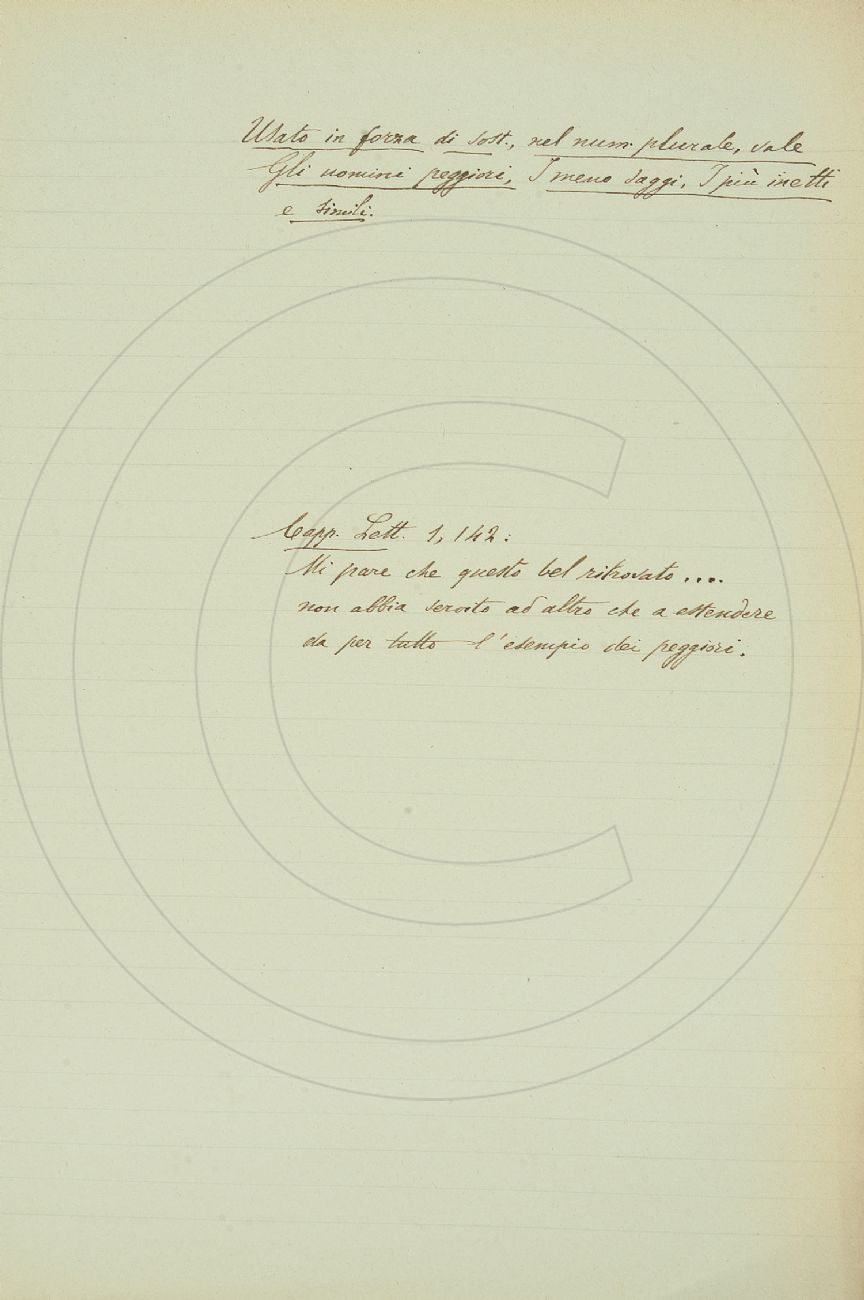 Usato in forza di sost., nel num. plurale, vale
Gli uomini peggiori, I meno saggi, I più inetti
e simili.
Capp. Lett. 1, 142:
Mi pare che questo bel ritrovato....
non abbia servito ad altro che a estendere
da per tutto l'esempio dei peggiori.